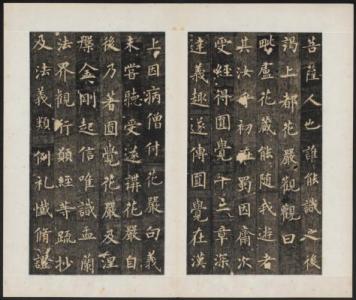 菩薩人也誰能識之後
謁上都花嚴觀觀曰
毗盧花藏能隨我遊者
其汝乎初在蜀因齋次
受經得圓覺十二章深
達義趣遂傳圓覺在漢
上因病僧付花嚴句義
未嘗聽受遂講花嚴自
後乃著圓覺花嚴及涅
槃金剛起信唯識盂蘭
法界觀行願經等疏抄
及法義類例礼懺脩證